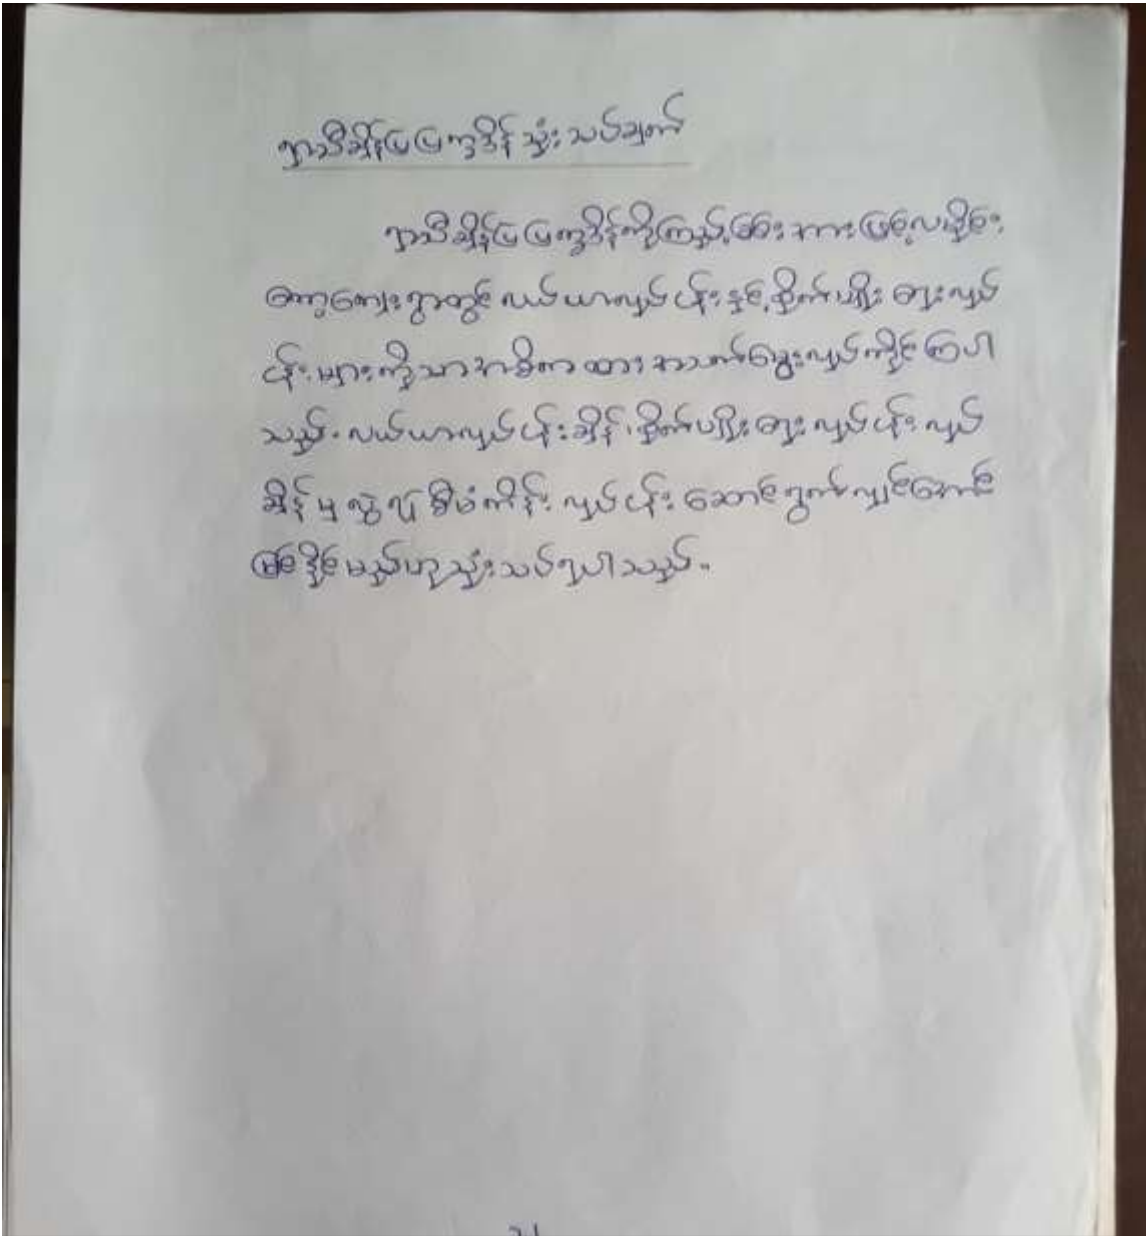 ရာသီချိန်ပြပြက္ခဒိန် သုံးသပ်ချက်
ရာသီချိန်ပြပြက္ခဒိန်ကိုကြည့်ခြင်းအားဖြင့်လမိုင်း
တော့ကျေးရွာတွင် လယ်ယာလုပ်ငန်းနှင့်စိုက်ပျိုးရေးလုပ်
ငန်းများကိုသာအဓိကထားအသက်မွေးလုပ်ကိုင်ကြပါ
သည်။ လယ်ယာလုပ်ငန်းချိန်၊ စိုက်ပျိုးရေးလုပ်ငန်းလုပ်
ချိန်မှလွဲ၍စီမံကိန်းလုပ်ငန်းဆောင်ရွက်လျှင်အောင်
မြင်နိုင်မည်ဟုသုံးသပ်ရပါသည်။